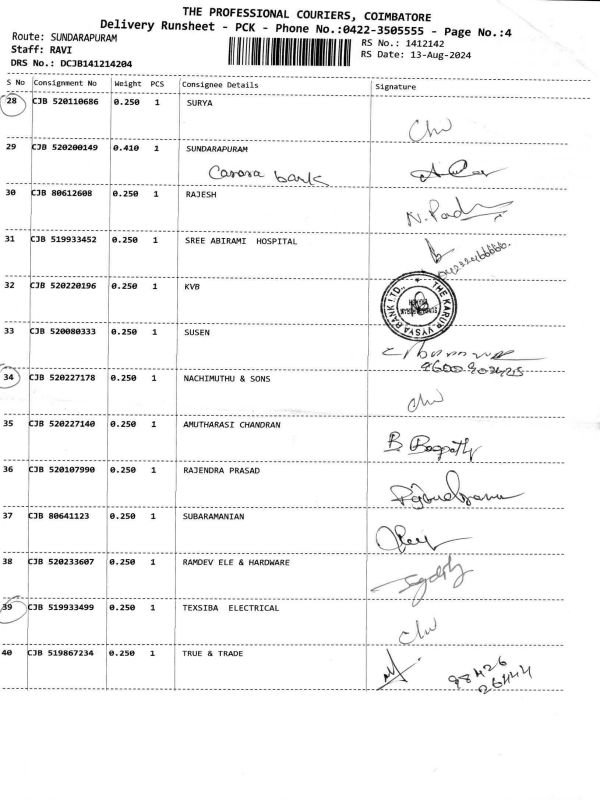 THE PROFESSIONAL COURIERS, COIMBATORE
Delivery Runsheet - PCK - Phone No.:0422-3505555 - Page No.:4
Route: SUNDARAPURAM RS No.: 1412142
Staff: RAVI RS Date: 13-Aug-2024
DRS No.: DCJB141214204
S No Consignment No Weight PCS Consignee Details Signature
28 CJB 520110686 0.250 1 SURYA
29 CJB 520200149 0.410 1 SUNDARAPURAM
Canara bank
30 CJB 80612608 0.250 1 RAJESH
31 CJB 519933452 0.250 1 SREE ABIRAMI HOSPITAL
32 CJB 520220196 0.250 1 KVB
THE KARUR VYSYA BANK LTD.,
33 CJB 520080333 0.250 1 SUSEN
34 CJB 520227178 0.250 1 NACHIMUTHU & SONS
35 CJB 520227140 0.250 1 AMUTHARASI CHANDRAN
B. Boopathy
36 CJB 520107990 0.250 1 RAJENDRA PRASAD
37 CJB 80641123 0.250 1 SUBARAMANIAN
38 CJB 520233607 0.250 1 RAMDEV ELE & HARDWARE
39 CJB 519933499 0.250 1 TEXSIBA ELECTRICAL
40 CJB 519867234 0.250 1 TRUE & TRADE
98426
26444